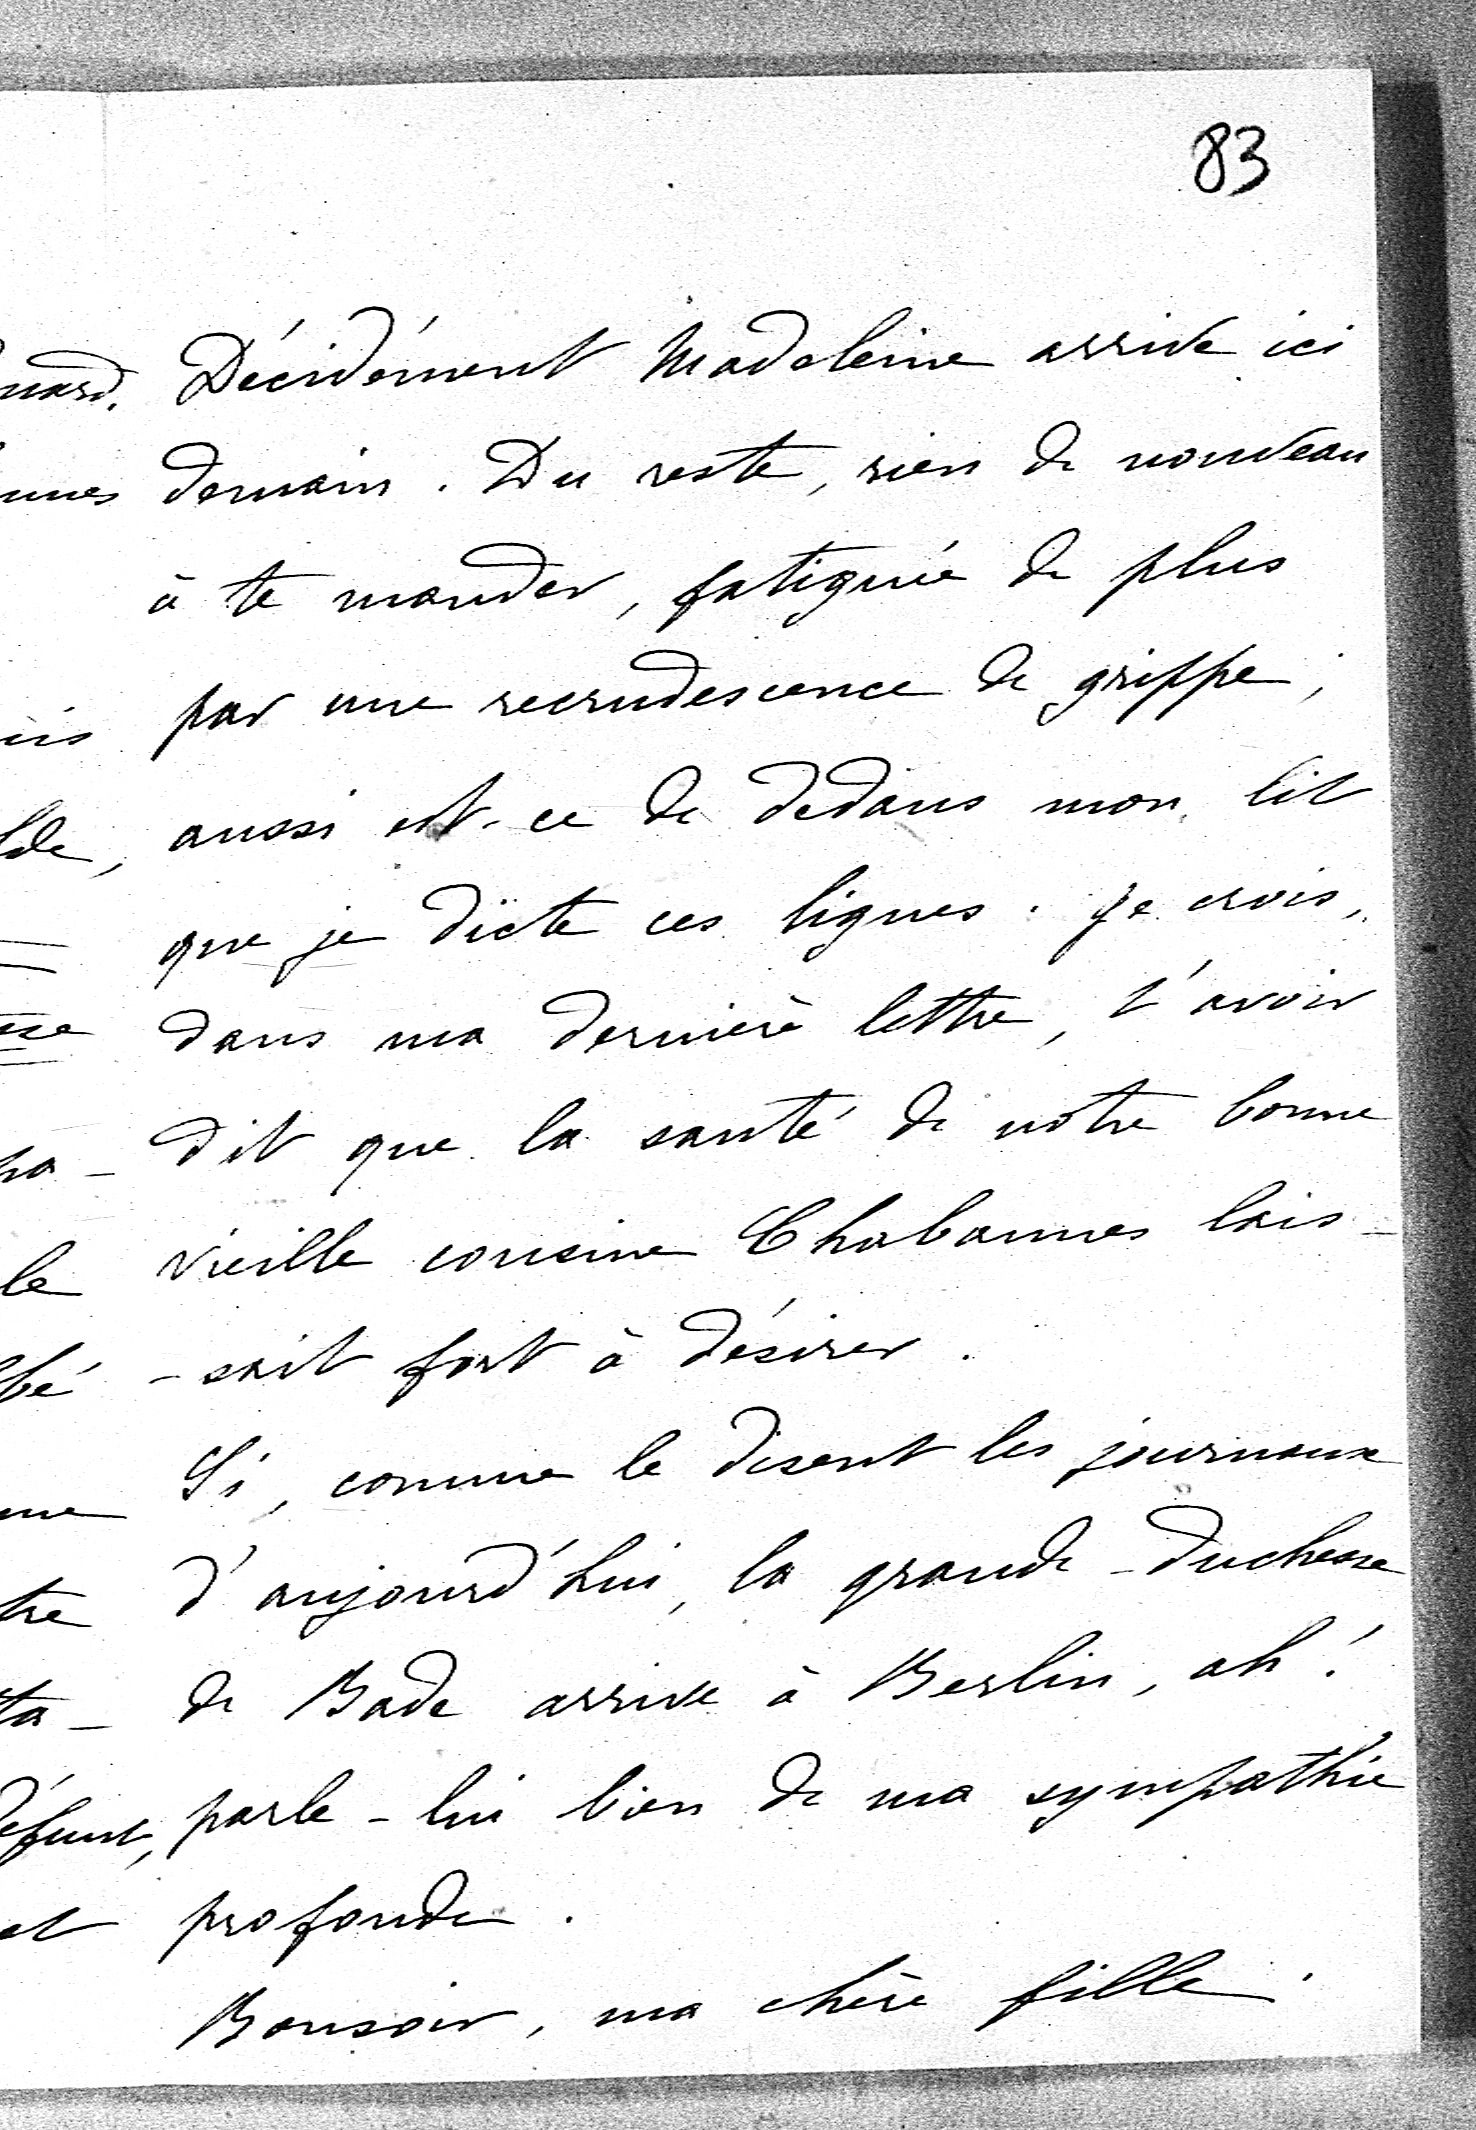 83
Décidément Madeleine arrive ici
demain. Du reste, rien de nouveau
à te mander, fatiguée de plus
par une recrudescence de grippe,
aussi est-ce de dedans mon lit
que je dicte ces lignes. Je crois,
dans ma dernière lettre, t'avoir
dit que la santé de notre bonne
vieille cousine Chabannes lais-
-sait fort à désirer.
Si, comme le disent les journaux
d'aujourd'hui, la grande-duchesse
de Bade arrive à Berlin, ah!
parle-lui bien de ma sympathie
profonde.
Bonsoir, ma chère fille.